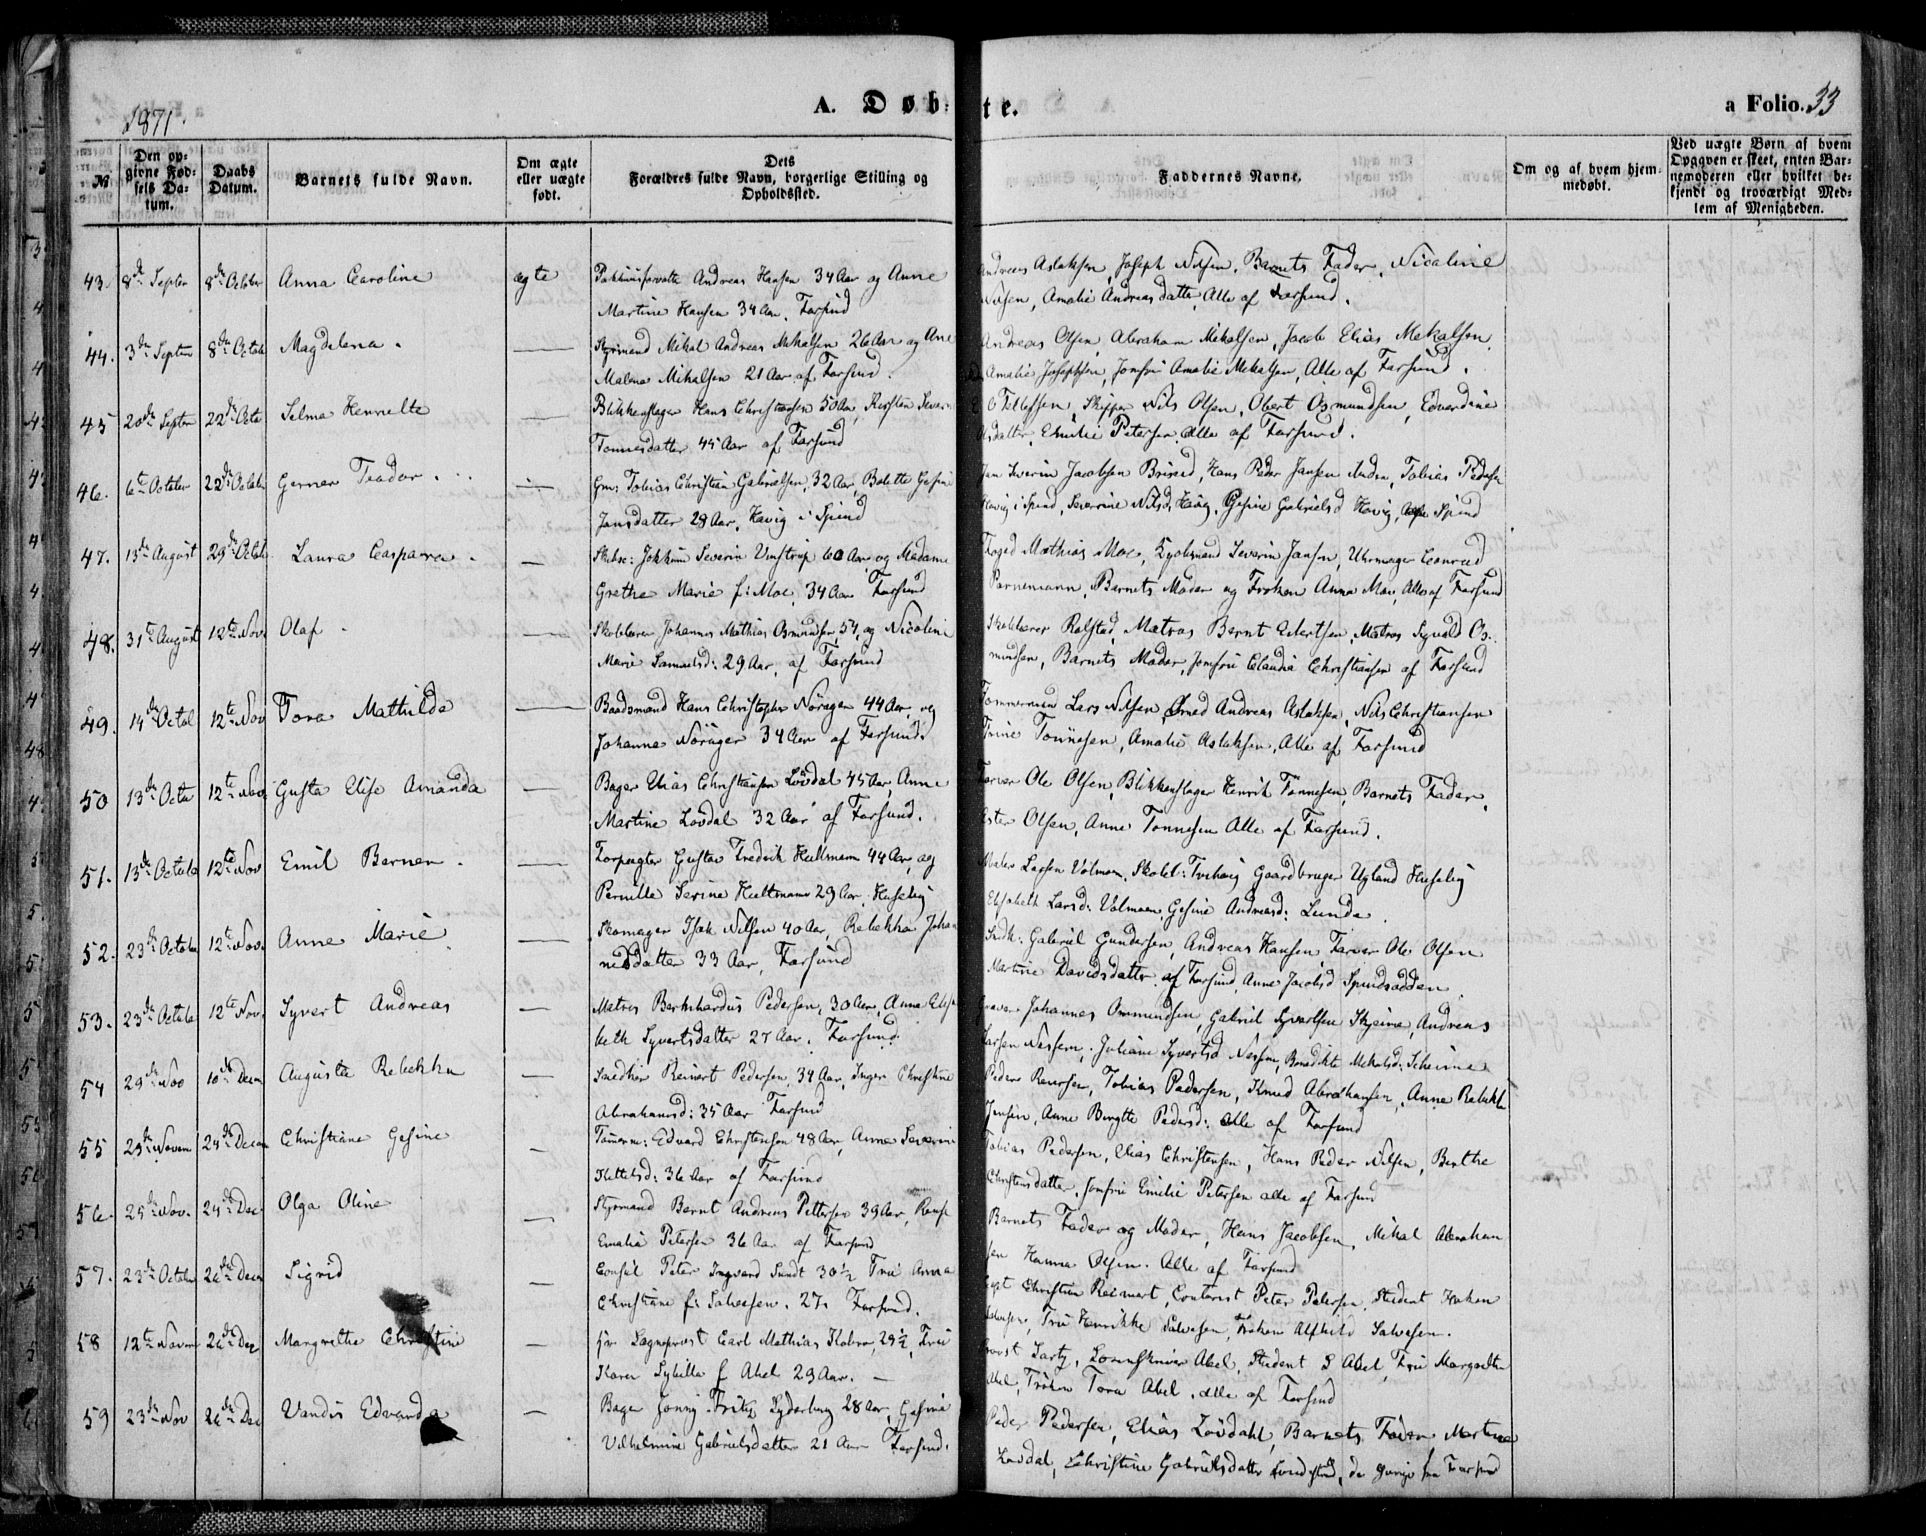 1871.
A. Døbte.
a Folio. 33
No
Den opgivne Fødsels Datum.
Daabs Datum.
Barnets fulde Navn.
Om ægte eller uægte født.
Dets Forældres fulde Navn, borgerlige Stilling og Opholdssted.
Faddernes Navne.
Om og af hvem hjemmedøbt.
Ved uægte Børn af hvem Opgaven er skeet, enten Barnemoderen eller hvilket bekjendt og troværdigt Medlem af Menigheden.
43. 8de Septbr 8de October Anna Caroline ægte Andreas Hansen 34 Aar og Anne
Martine Hansen 34 Aar, Farsund
Andreas Aslaksen, Joseph Nilsen, Barnets Fader, Nicoline
Nilsen, Amalie Andreasdatter, Alle af Farsund.
44. 3de Septbr 8de Octob Magdalena. — Styrmand Mikal Andreas Mikalsen 26 Aar og Ane
Malene Mikalsen 21 Aar af Farsund.
Andreas Olsen, Abraham Mikalsen, Jacob Elias Mekalsen,
Amalie Josephsen, Jomfru Amalie Mekalsen, Alle af Farsund.
45 20de Septbr 22de Octo Selma Henriette — Blikkenslager Hans Christiansen 50 Aar, Kirsten Sever
Tonnesdatter 45 Aar af Farsund
Tellefsen, Skipper Nils Olsen, Obert Osmundsen, Edvardine
Emilie Petersen, alle af Farsund.
46. 6te October 22de October Gerner Teador. — Gm: Tobias Christian Gabrielsen, 32 Aar, Bolette Gesine
Jansdatter 28 Aar, Havig i Spind
Jan Severin Jacobsen Briseid, Hans Peder Jansen Andra, Tobias Peders
Havig i Spind, Severine Nilsd, Havig, Gesine Gabrielsd Havig, Spind
47. 13de August 29de Octob Laura Caspara. — Jokkum Severin Umstrup 60 Aar og Madame
Grethe Marie f: Moe, 34 Aar Farsund
Foged Mathias Moe, Kjøbmand Severin Jansen, Uhrmager Conrad
Parnemann, Barnets Moder og Frøken Anna Moe, Alle af Farsund
48. 31te August 12te Nov. Olaf. — Skolelærer Johannes Mathias Osmundsen, 54, og Nicoline
Marie Samuelsd: 29 Aar, af Farsund
Skolelærer Rolstad, Matros Bernt Eilertsen, Matros Sigvald Os-
mundsen, Barnets Moder, Jomfru Claudia Christiansen af Farsund
49. 14de Octob 12te Nov Tora Mathilda — Baadsmand Hans Christopher Nörager 44 Aar, og
Johanna Nörager 34 Aar af Farsund.
Tømmermand Lars Nilsen, Andreas Aslaksen, Nils Christiansen
Trine Tonnesen, Amalie Aslaksen, Alle af Farsund
50 13de Octo 12te Nov. Gusta Elise Amanda — Bager Elias Christiansen Lövdal 45 Aar, Anne
Martine Lövdal 32 Aar af Farsund.
Farver Ole Olsen, Blikkenslager Henrik Tonnesen, Barnets Fader,
Olsen, Anne Tonnesen Alle af Farsund.
51. 13de Octobe 12te Nov Emil Berner. — Forpagter Gustav Fredrik Hultmann 44 Aar, og
Pernille Serine Hultmann 29 Aar, Huseby
Maler Larsen Volman, Gaardbruger Ugland Huseby
Elisabeth Larsd: Volman, Gesine Andreasd: Lunde.
52. 23de October 12te Nov. Anne Marie — Skomager Isak Nilsen 40 Aar, Rebekka Johan
nesdatter 33 Aar, Farsund
Gabriel Gundersen, Andreas Hansen, Farver Ole Olsen
Martine Davidsdatter af Farsund, Anne Jacobsd Spindsodden.
53. 23de Octobe 12te Nov. Syvert Andreas — Matros Bernhardus Pedersen, 30 Aar, Anna Elisa
beth Syvertsdatter 27 Aar. Farsund.
Johannes Ommundsen, Gabriel Syvertsen Skjeime, Andreas
Juliane Syvertsd Benedikte Mikalsd: Scheime
54 29de Nov 10de Decm Augusta Rebekka — Snedker Reinert Pedersen, 34 Aar, Inger Christine
Abrahamsd: 35 Aar Farsund
Peder Reinersen, Tobias Pedersen, Knud Abrahamsen, Anne Rebekka
Jensen, Anne Birgitte Pedersd: Alle af Farsund
55 29de Novem 24de Decem Christiane Gesine — Tömrm: Edvard Christensen 48 Aar, Anna Severine
Kittelsd: 36 Aar af Farsund
Tobias Pedersen, Elias Christensen, Hans Peder Nilsen, Berthe
Christensdatter, Jomfru Emilie Petersen alle af Farsund
56. 25de Nov. 24de Dec. Olga Oline — Styrmand Bernt Andreas Pettersen 39 Aar,
Emalie Petersen 36 Aar af Farsund
Barnets Fader og Moder, Hans Jacobsen, Mikal Abraham
sen Hanna Olsen. Alle af Farsund
57. 23de October 26de Decm Sigrid — Consul Peter Ingvard Sundt 30½ Frue Anna
Christiane f: Salvesen. 27. Farsund.
Christian Reinert, Contorist Peter Petersen, Student Haken
Salvesen, Frue Henrikke Salvesen, Frøken Alfhild Salvesen.
58 12te Novem 26de Dec Margrethe Christine — Hr Sogneprest Carl Mathias Kobro, 29½, Frue
Karen Sybille f Abel 29 Aar. —
Provst Sorenskriver Abel, Student S Abel, Frue Margrethe
Abel, Frøken Tora Abel, alle af Farsund
59 23de Nov 26de Dec Vandis Edvarda — Bager Jonny Fritz Syderborg 28 Aar, Gesine
Vilhelmine Gabrielsdatter 21 Aar Farsund.
Peder Pedersen, Elias Lövdahl, Barnets Fader Martine
Lovdal, Christine Gabrielsdatter de øvrige fra Farsund